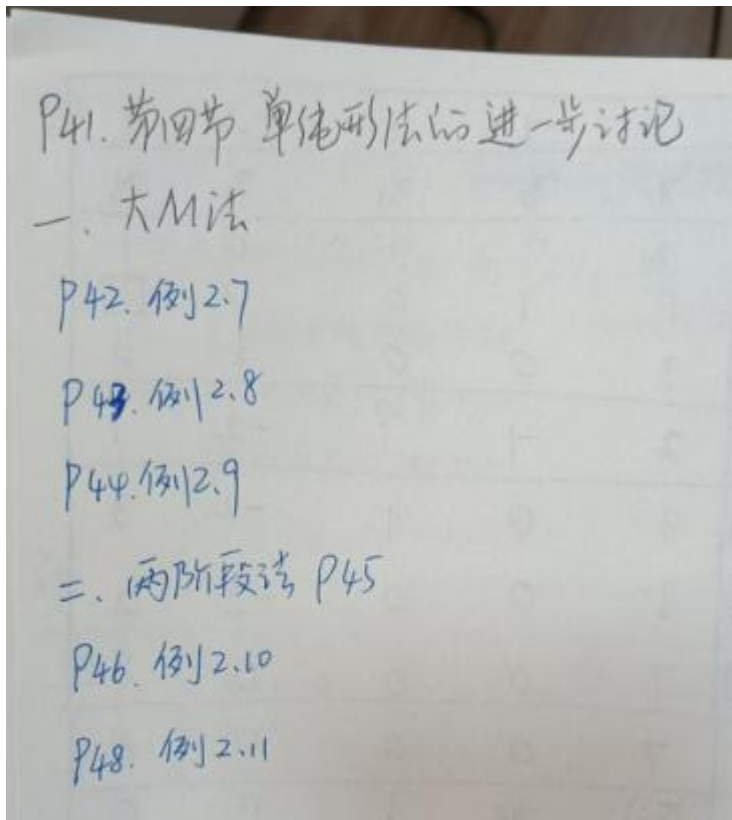 P41. 第四节 单纯形法的进一步讨论
一、大M法
P42. 例2.7
P43. 例2.8
P44. 例2.9
二、两阶段法 P45
P46. 例2.10
P48. 例2.11